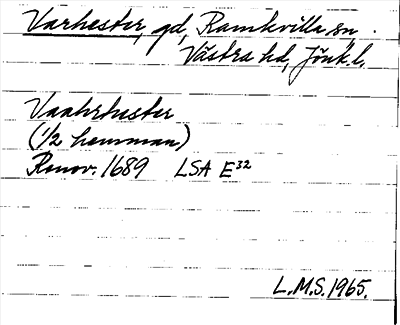 Varhester, gd, Ramkvilla sn,
Västra hd, Jönk.l.
Vaahrhester
(1/2 hemman)
Renov. 1689 LSA E32
L.M.S. 1965.